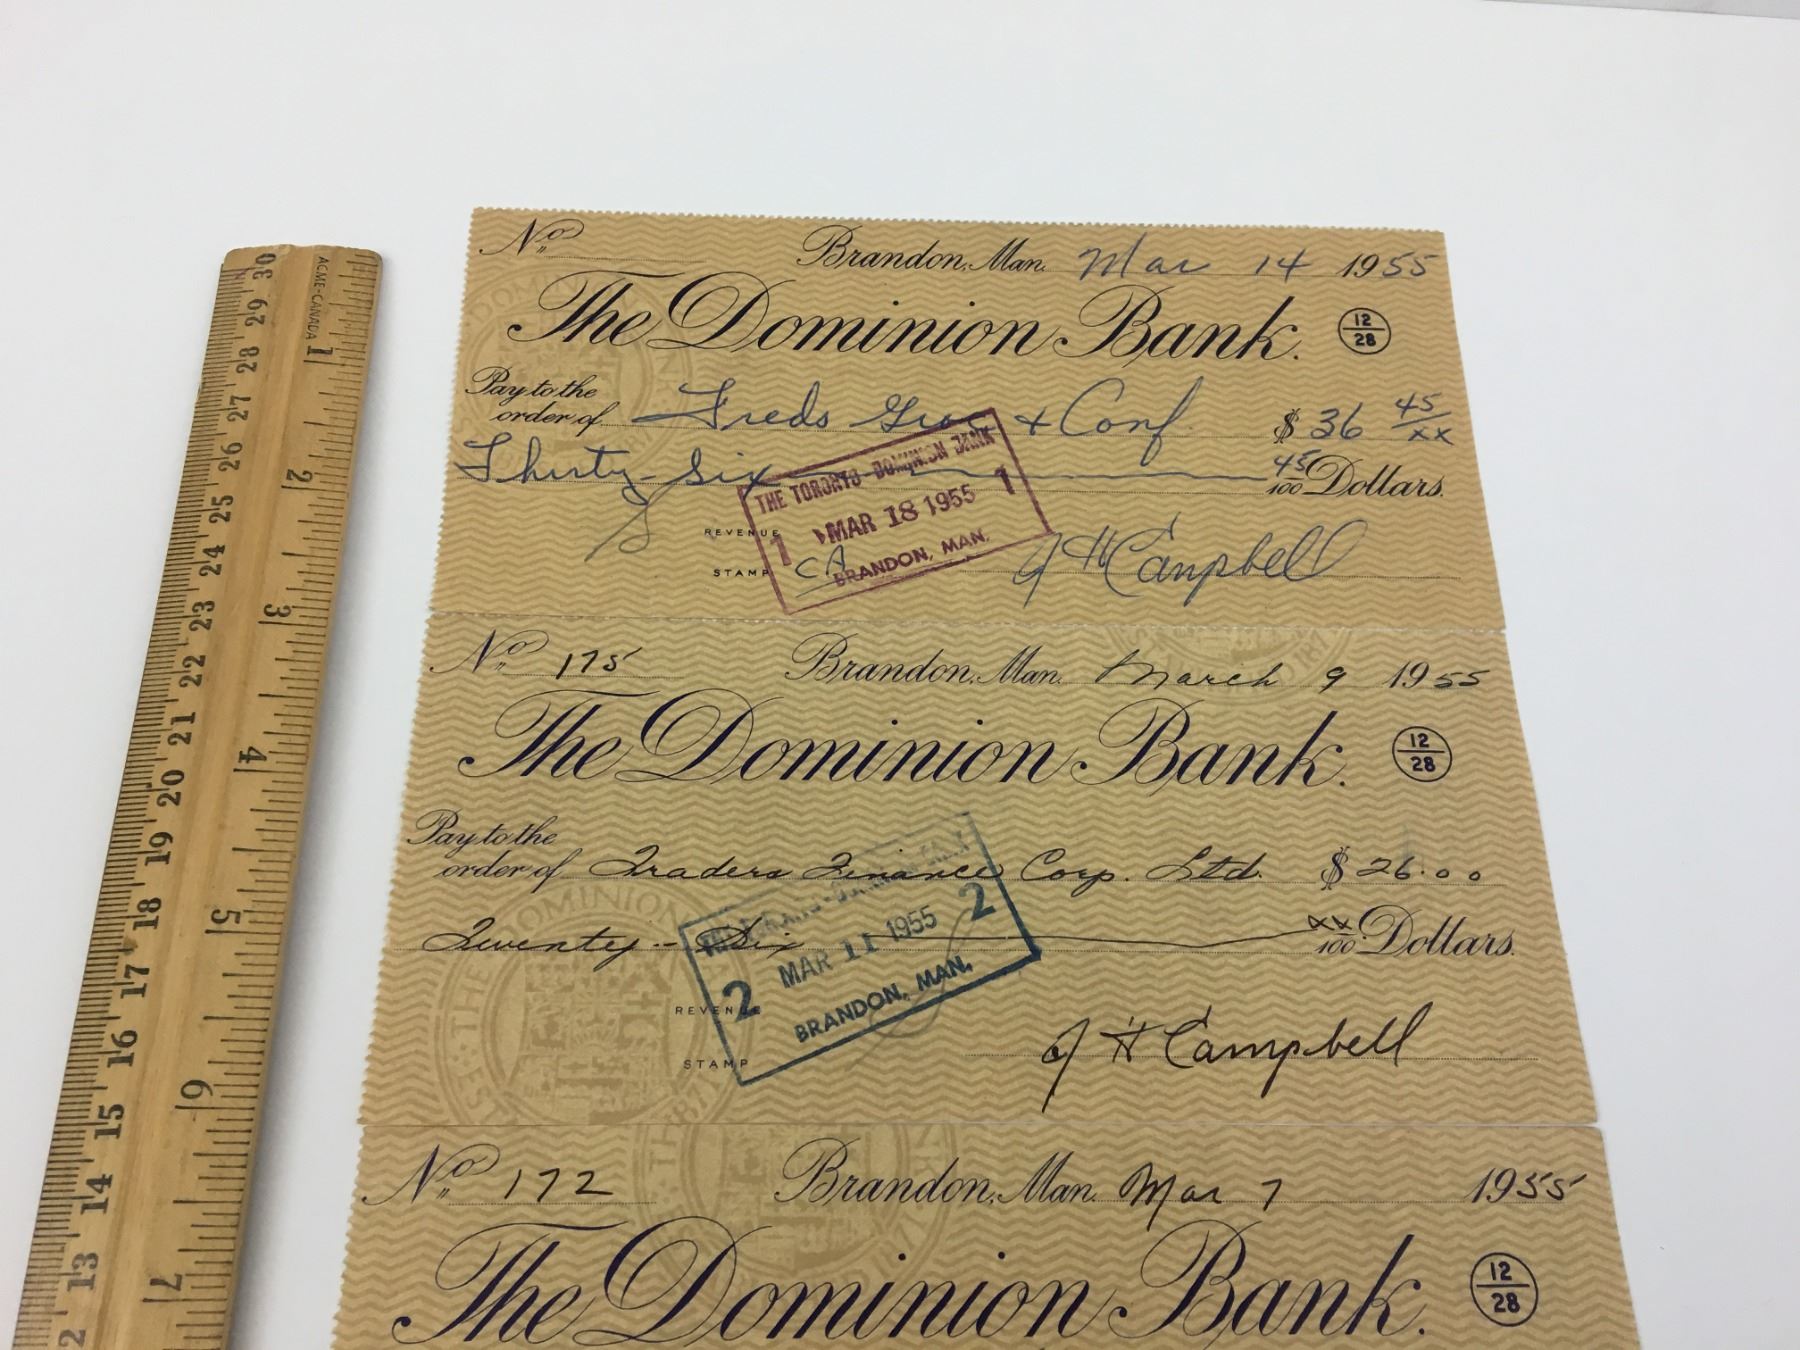 ACME-CANADA
30 29 28 27 26 25 24 23 22 21 20 19 18 17 16 15 14 13 2
1 2 3 4 5 6 7
No.
Brandon, Man. Mar 14 1955
The Dominion Bank.
12
28
Pay to the
order of Freds Groc + Conf. $ 36 45/xx
Thirty-Six 45/100 Dollars.
THE TORONTO-DOMINION BANK
1 MAR 18 1955 1
BRANDON, MAN.
REVENUE
STAMP
CA
J H Campbell
No. 175 Brandon, Man. March 9 1955
The Dominion Bank.
12
28
Pay to the
order of Traders Finance Corp. Ltd. $ 26.00
Twenty-Six xx/100 Dollars.
THE TORONTO-DOMINION BANK
2 MAR 11 1955 2
BRANDON, MAN.
REVENUE
STAMP
J H Campbell
No. 172 Brandon, Man. Mar 7 1955
The Dominion Bank.
12
28